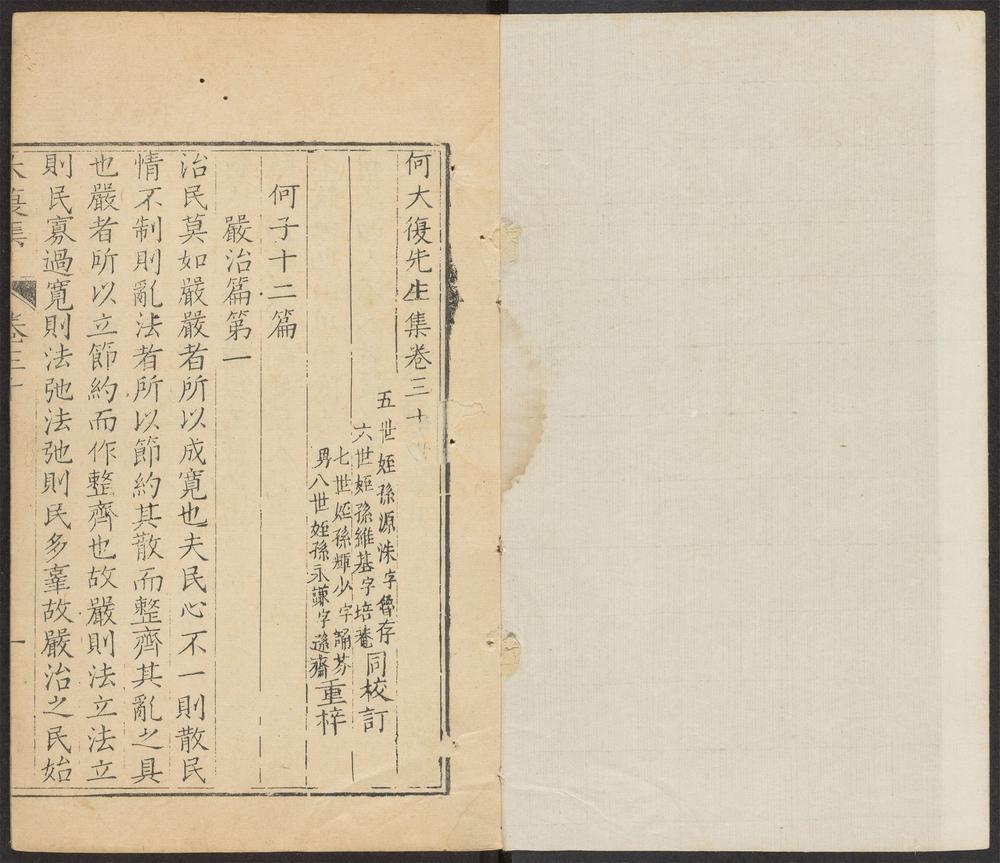 何大復先生集卷三十
五世姪孫源洙字魯存
六世姪孫維基字培菴同校訂
七世姪孫輝少字誦芬
男八世姪孫永謙字遜齋重梓
何子十二篇
嚴治篇第一
治民莫如嚴嚴者所以成寬也夫民心不一則散民
情不制則亂法者所以節約其散而整齊其亂之具
也嚴者所以立節約而作整齊也故嚴則法立法立
則民寡過寬則法弛法弛則民多辜故嚴治之民始
大復集
卷三十
一